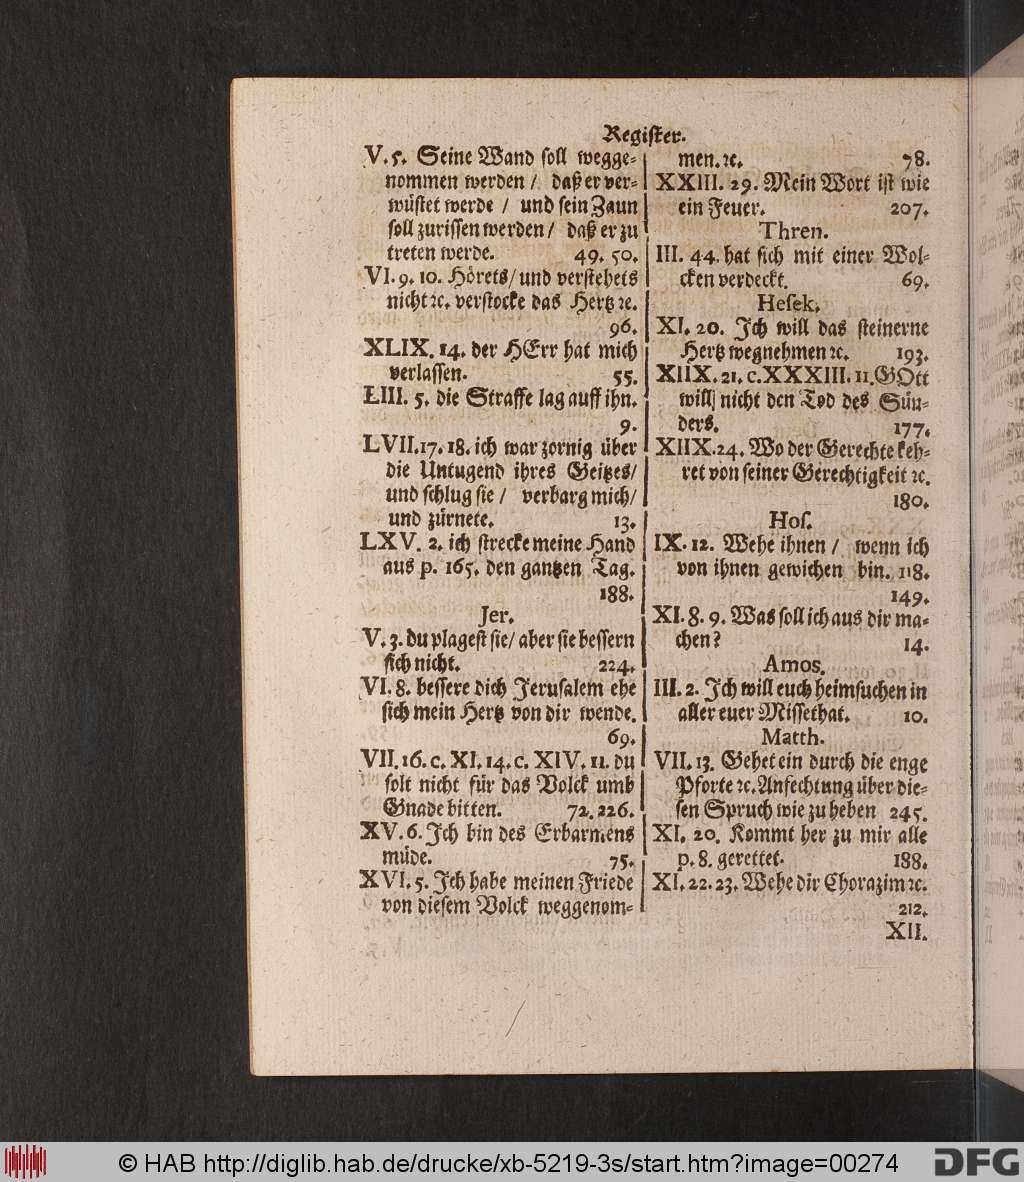 Register.
V. 5. Seine Wand soll wegge-
nommen werden / daß er ver-
wüstet werde / und sein Zaun
soll zurissen werden / daß er zu
treten werde. 49. 50.
VI. 9. 10. Hörets / und verstehets
nicht ꝛc. verstocke das Hertz ꝛc.
96.
XLIX. 14. der HErr hat mich
verlassen. 55.
LIII. 5. die Straffe lag auff ihn.
9.
LVII. 17. 18. ich war zornig über
die Untugend ihres Geitzes /
und schlug sie / verbarg mich /
und zürnete. 13.
LXV. 2. ich strecke meine Hand
aus p. 165. den gantzen Tag.
188.
Jer.
V. 3. du plagest sie / aber sie bessern
sich nicht. 224.
VI. 8. bessere dich Jerusalem ehe
sich mein Hertz von dir wende.
69.
VII. 16. c. XI. 14. c. XIV. 11. du
solt nicht für das Volck umb
Gnade bitten. 72. 226.
XV. 6. Ich bin des Erbarmens
müde. 75.
XVI. 5. Ich habe meinen Friede
von diesem Volck weggenom-
men. ꝛc. 78.
XXIII. 29. Mein Wort ist wie
ein Feuer. 207.
Thren.
III. 44. hat sich mit einer Wol-
cken verdeckt. 69.
Hesek.
XI. 20. Ich will das steinerne
Hertz wegnehmen ꝛc. 193.
XIIX. 21. c. XXXIII. 11. GOtt
will nicht den Tod des Sün-
ders. 177.
XIIX. 24. Wo der Gerechte keh-
ret von seiner Gerechtigkeit ꝛc.
180.
Hos.
IX. 12. Wehe ihnen / wenn ich
von ihnen gewichen bin. 118.
149.
XI. 8. 9. Was soll ich aus dir ma-
chen? 14.
Amos.
III. 2. Ich will euch heimsuchen in
aller euer Missethat. 10.
Matth.
VII. 13. Gehet ein durch die enge
Pforte ꝛc. Anfechtung über die-
sen Spruch wie zu heben 245.
XI. 20. Kommt her zu mir alle
p. 8. gerettet. 188.
XI. 22. 23. Wehe dir Chorazim ꝛc.
212.
XII.
© HAB http://diglib.hab.de/drucke/xb-5219-3s/start.htm?image=00274
DFG